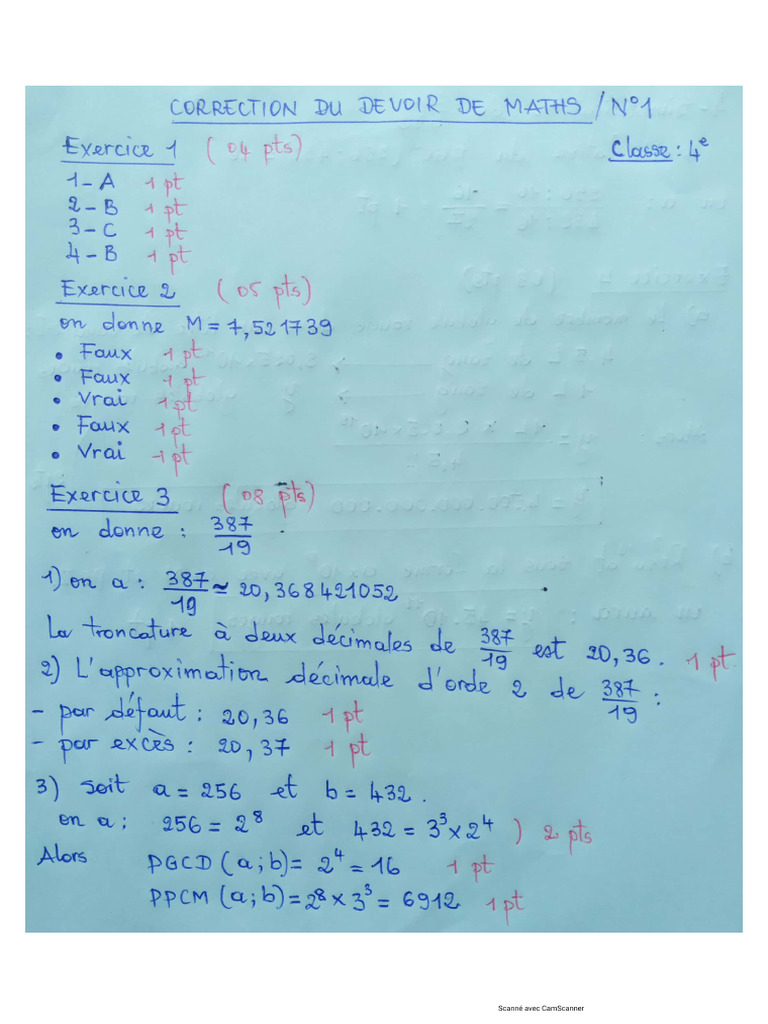 CORRECTION DU DEVOIR DE MATHS / N°1
Exercice 1 (04 pts) Classe : 4e
1 - A 1 pt
2 - B 1 pt
3 - C 1 pt
4 - B 1 pt
Exercice 2 (05 pts)
on donne M = 7,521739
• Faux 1 pt
• Faux 1 pt
• Vrai 1 pt
• Faux 1 pt
• Vrai 1 pt
Exercice 3 (08 pts)
on donne : 387/19
1) on a : 387/19 ≃ 20,368421052
La troncature à deux décimales de 387/19 est 20,36. 1 pt
2) L'approximation décimale d'orde 2 de 387/19 :
- par défaut : 20,36 1 pt
- par excès : 20,37 1 pt
3) soit a = 256 et b = 432.
on a : 256 = 2^8 et 432 = 3^3 x 2^4 ) 2 pts
Alors PGCD (a;b) = 2^4 = 16 1 pt
PPCM (a;b) = 2^8 x 3^3 = 6912 1 pt
Scanné avec CamScanner